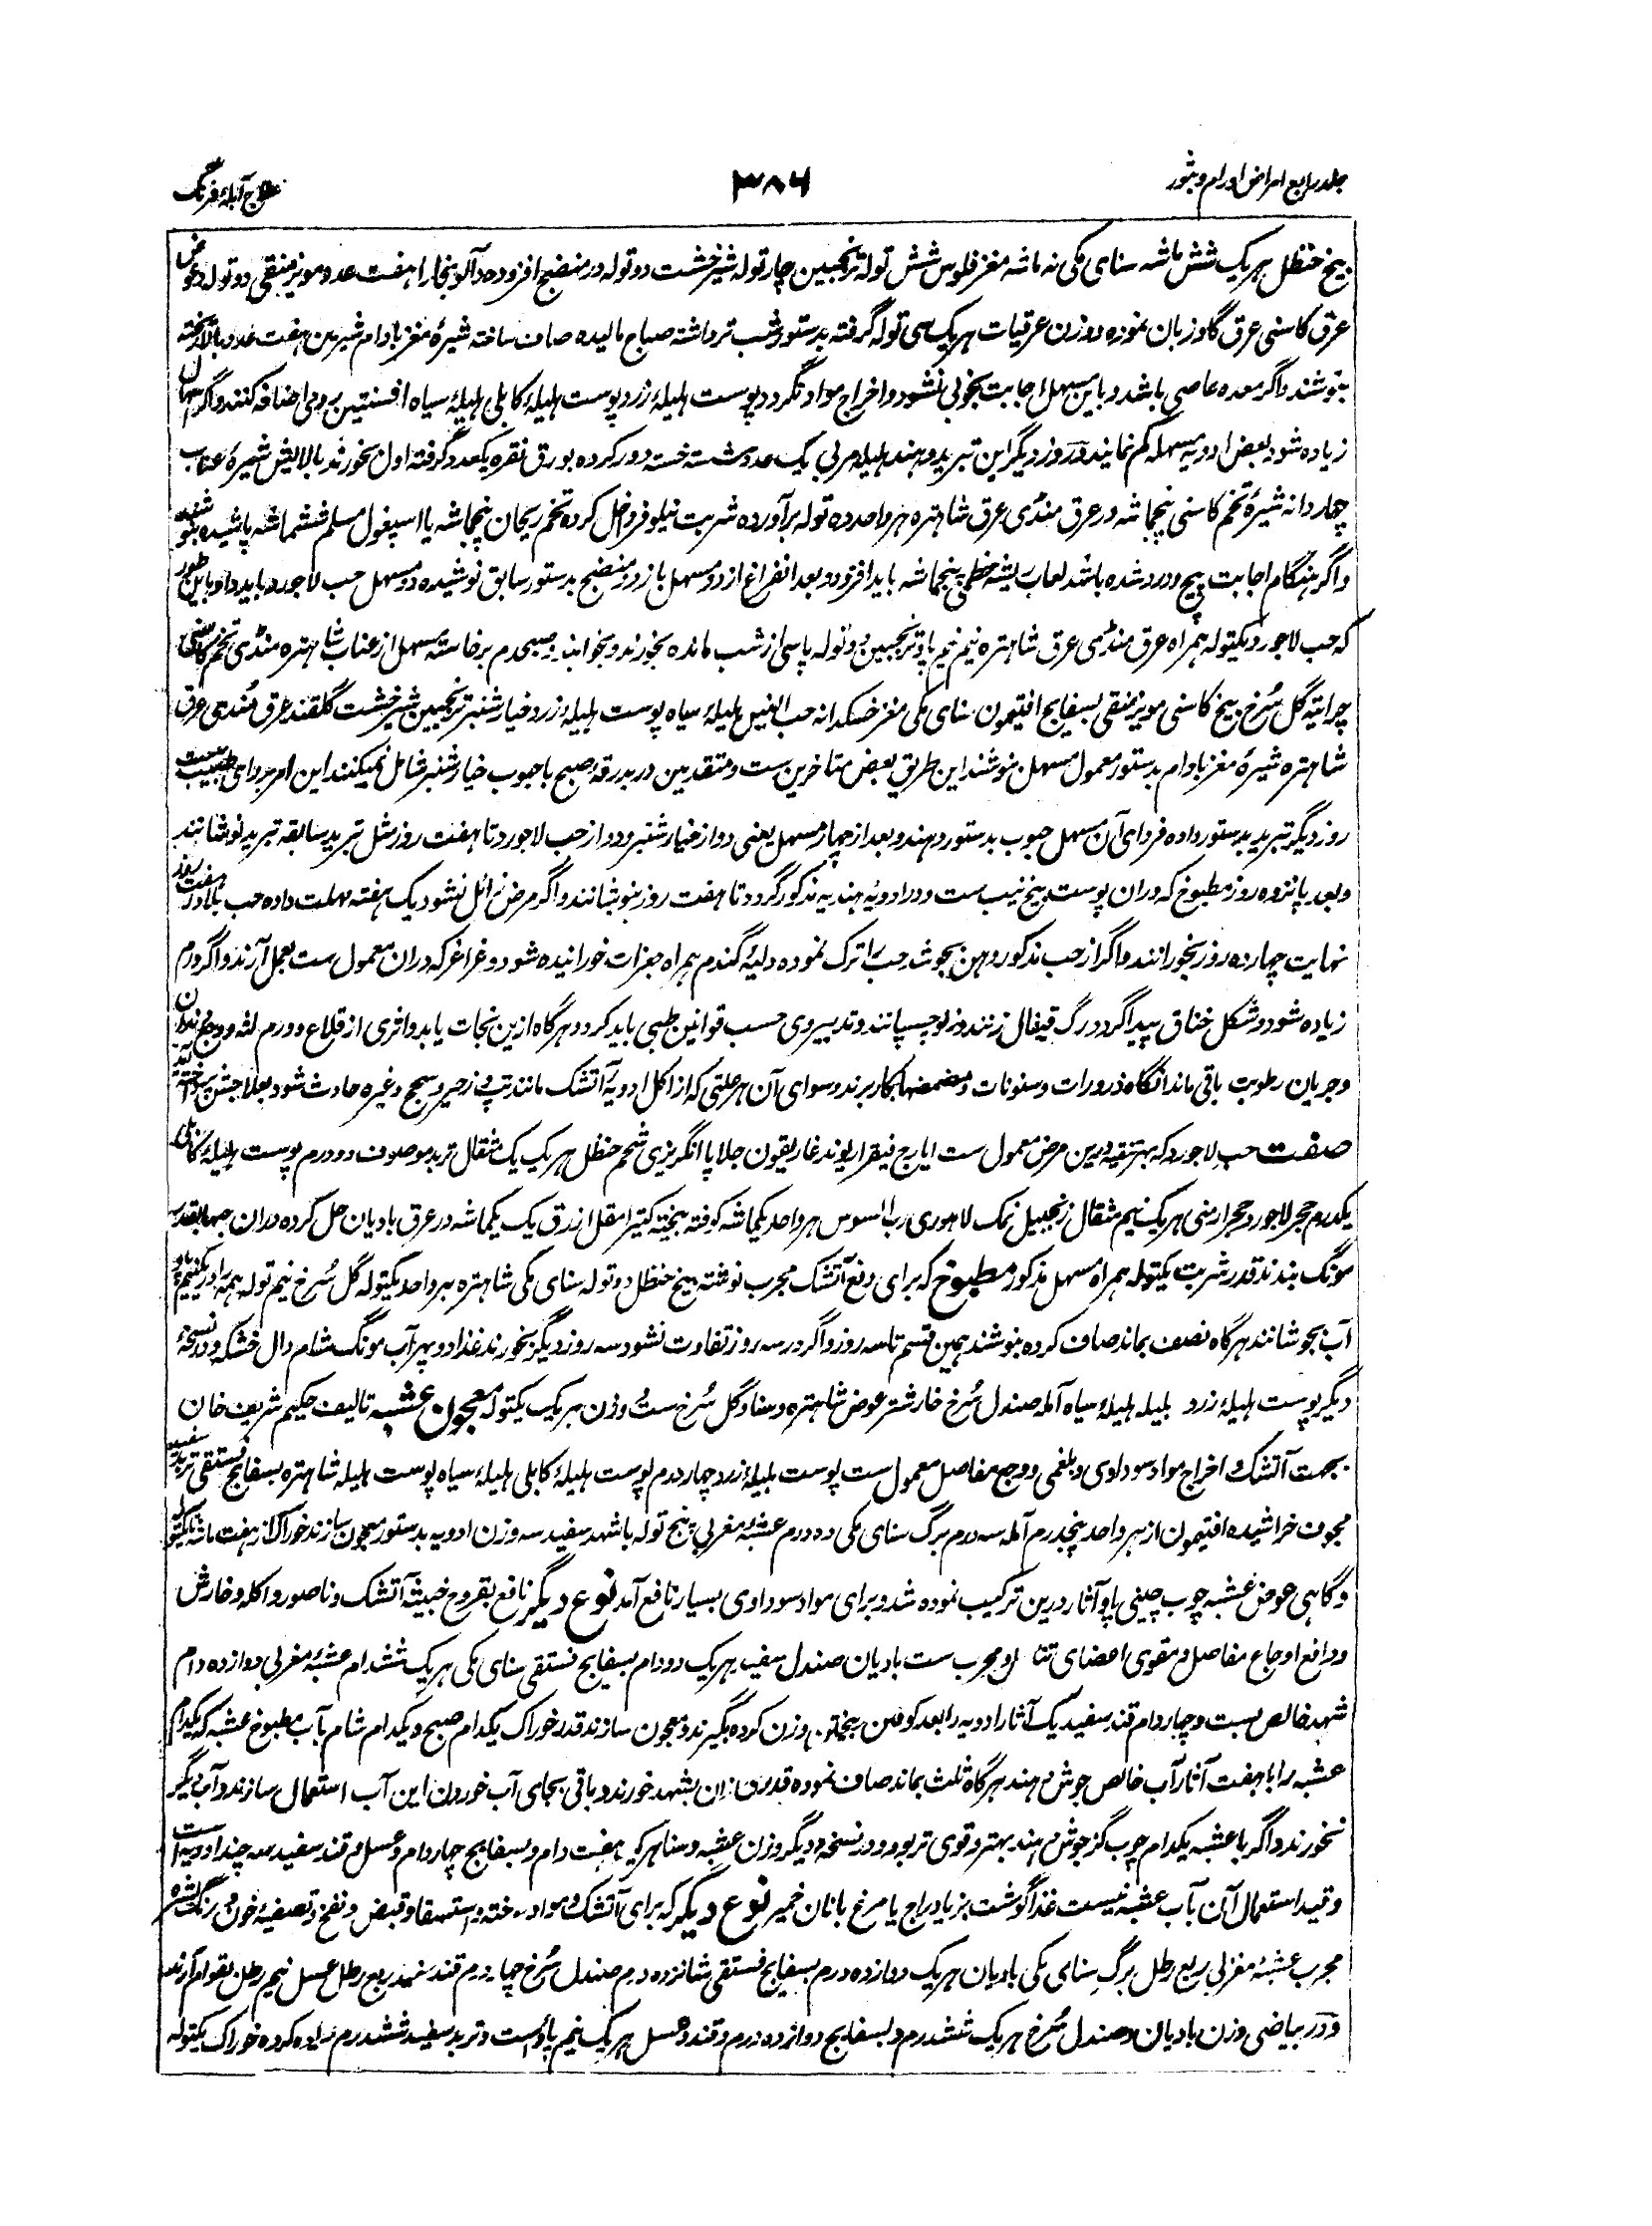 جلد رابع امراض اورام و بثور
۳۸۶
علاج آبلهٔ فرنگ
بیخ حنظل هر یک شش ماشه سنای مکی نه ماشه مغز فلوس شش توله ترنجبین چار توله شیرخشت دو توله در منضج افزوده و آلو بخارا هفت عدد مویز منقی دو توله و عوض
عرق کاسنی عرق گاوزبان نموده و وزن عرقیات هر یک سی توله گرفته بدستور شب تر داشته صباح مالیده صاف ساخته شیرهٔ مغز بادام شیرین هفت عدد بالا ریخته
بنوشند و اگر معده عاصی باشد و باین مسهل اجابت بخوبی نشود و اخراج مواد نگردد پوست هلیلهٔ زرد پوست هلیلهٔ کابلی هلیلهٔ سیاه افسنتین رومی اضافه کنند و اگر اسهال
زیاده شود بعض ادویه مسهله کم نمایند و روز دیگر این تبرید دهند هلیله مربی یک عدد شسته خسته دور کرده بورق نقره یکعدد گرفته اول بخورند بالایش شیرهٔ عناب
چهار دانه شیرهٔ تخم کاسنی پنجماشه در عرق منڈی عرق شاهتره هر واحد ده توله برآورده شربت نیلوفر داخل کرده تخم ریحان پنجماشه یا اسپغول مسلم ششماشه پاشیده بنوشند
و اگر هنگام اجابت پیچ و درد شده باشد لعاب ریشه خطمی پنجماشه باید افزود و بعد انفراغ از دو مسهل باز دو منضج بدستور سابق نوشیده دو مسهل حب لاجورد باید داد باین طور
که حب لاجورد یکتوله همراه عرق منڈی عرق شاهتره نیم نیم پاؤ ترنجبین دو توله پاسی از شب مانده بخورند و بخوابند و صبحدم برخاسته مسهل از عناب شاهتره منڈی تخم کاسنی
چرایته گل سرخ بیخ کاسنی مویز منقی بسفایج افتیمون سنای مکی مغز خسکدانه حب النیل هلیلهٔ سیاه پوست هلیلهٔ زرد خیارشنبر ترنجبین شیرخشت گلقند عرق منڈی عرق
شاهتره شیرهٔ مغز بادام بدستور معمول مسهل بنوشند این طریق بعض متاخرین ست و متقدمین در بدرقه صبح با حبوب خیارشنبر شامل نمیکنند این امر بر رای طبیب ست
روز دیگر تبرید بدستور داده فردای آن مسهل حبوب بدستور دهند و بعد از چهار مسهل یعنی دو از خیارشنبر و دو از حب لاجورد تا هفت روز مثل تبرید سابقه تبرید نوشانند
و بعد پانزده روز مطبوخ که دران پوست بیخ نیب ست و در ادویهٔ هندیه مذکور گردد تا هفت روز بنوشانند و اگر مرض زائل نشود یک هفته مهلت داده حب بلادر هفت روز
نهایت چهارده روز بخورانند و اگر از حب مذکور دهن بجوشد حب را ترک نموده دلیهٔ گندم همراه جغرات خورانیده شود و غراغر که دران معمول ست بعمل آرند و اگر ورم
زیاده شود و شکل خناق پیدا گردد رگ قیفال زنند و زلو چسپانند و تدبیر وی حسب قوانین طبی باید کرد و هرگاه ازین نجات یابد و اثری از قلاع و ورم لثه و وجع دندان
و جریان رطوبت باقی ماند انگاه ذرورات و سنونات و مضمضها بکار برند و سوای آن هر علتی که از اکل ادویهٔ آتشک مانند تپ و زحیر و سحج و غیره حادث شود بعلاجش پرداخته آید
صفت حب لاجورد که بهر تنقیه درین مرض معمول ست ایارج فیقرا ریوند غاریقون جلاپا انگریزی شحم حنظل هر یک یک مثقال تربد موصوف دو درم پوست هلیلهٔ کابلی
یکدرم حجر لاجورد حجر ارمنی هر یک نیم مثقال زنجبیل نمک لاهوری رب السوس هر واحد یکماشه کوفته بیخته کتیرا مقل ازرق یک یکماشه در عرق بادیان حل کرده دران حبها بقدر
مونگ بندند قدر شربت یکتوله همراه مسهل مذکور مطبوخ که برای دفع آتشک مجرب نوشته بیخ حنظل دو توله سنای مکی شاهتره هر واحد یکتوله گل سرخ نیم توله همه را در یکنیم پاؤ
آب بجوشانند هرگاه نصف بماند صاف کرده بنوشند همین قسم تا سه روز و اگر در سه روز تفاوت نشود سه روز دیگر بخورند غذا دوپهر آب مونگ شام دال خشکه و در نسخهٔ
دیگر پوست هلیلهٔ زرد بلیله هلیلهٔ سیاه آمله صندل سرخ خارشتر عوض شاهتره و سنا و گل سرخ ست و وزن هر یک یکتوله معجون عشبه تالیف حکیم شریف خان
بجهت آتشک و اخراج مواد سوداوی و بلغمی و وجع مفاصل معمول ست پوست هلیلهٔ زرد چهار درم پوست هلیلهٔ کابلی هلیلهٔ سیاه پوست بلیله شاهتره بسفایج فستقی تربد سفید
مجوف خراشیده افتیمون از هر واحد پنجدرم آمله سه درم برگ سنای مکی ده درم عشبهٔ مغربی پنج توله باشهد سفید سه وزن ادویه بدستور معجون سازند خوراک از هفت ماشه تا یکتوله
و گاهی عوض عشبه چوب چینی پاؤ آثار درین ترکیب نموده شد و برای مواد سوداوی بسیار نافع آمد نوع دیگر نافع بقروح خبیثه آتشک و ناصور و اکله و خارش
و دافع اوجاع مفاصل و مقوی اعضای و مجرب ست بادیان صندل سفید هر یک دو دام بسفایج فستقی سنای مکی هر یک ششدام عشبهٔ مغربی دوازده دام
شهد خالص بست و چهار دام قند سفید یک آثار ادویه را بعد کوفتن بیختن وزن کرده بگیرند و معجون سازند قدر خوراک یکدام صبح و یکدام شام بآب مطبوخ عشبه که یکدام
عشبه را با هفت آثار آب خالص جوش دهند هرگاه ثلث بماند صاف نموده قدری ازان بشهد خورند و باقی بجای آب خوردن این آب استعمال سازند و آب دیگر
نخورند و اگر با عشبه یکدام چوب گز جوش دهند بهتر و قوی تر بود و در نسخهٔ دیگر وزن عشبه و سنا هر یک هفت دام و بسفایج چهار دام و عسل و قند سفید سه چند ادویه است
و قید استعمال آن بآب عشبه نیست غذا گوشت بز یا دراج یا مرغ با نان خمیر نوع دیگر که برای آتشک و مواد سوخته و استسقا و قبض و نفخ و تصفیهٔ خون و رنگ بشره
مجرب عشبهٔ مغربی ربع رطل برگ سنای مکی بادیان هر یک دوازده درم بسفایج فستقی شانزده درم صندل سرخ چهار درم قند سفید ربع رطل عسل نیم رطل بقوام آرند
و در بیاضی وزن بادیان و صندل سرخ هر یک ششدرم و بسفایج دوازده درم و قند و عسل هر یک نیم پاؤ است و تربد سفید ششدرم زیاده کرده خوراک یکتوله